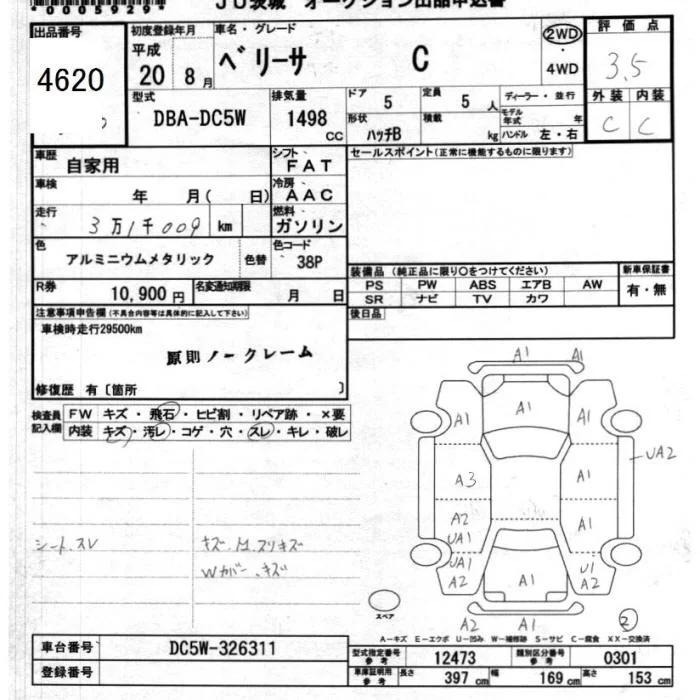 *00059294
JU茨城 オークション出品申込書
出品番号
4620
初度登録年月
平成
20 8月
車名・グレード
ベリーサ C
2WD
・
4WD
評価点
3.5
外装 内装
C C
型式
DBA-DC5W
排気量
1498
CC
ドア
5
定員
5人
ディーラー・並行
形状
ハッチB
積載
kg
モデル年式 年
ハンドル 左・右
車歴
自家用
シフト
FAT
セールスポイント(正常に機能するものに限ります)
車検
年 月( 日)
冷房
AAC
走行
3万1千009 km
燃料
ガソリン
色
アルミニウムメタリック 色替
色コード
38P
装備品 (純正品に限り○をつけてください)
PS PW ABS エアB AW
SR ナビ TV カワ
新車保証書
有・無
R券
10,900円
名変通知期限
月 日
後日品
注意事項申告欄(不具合内容等は具体的に記入して下さい)
車検時走行29500km
原則ノークレーム
修復歴 有〔箇所 〕
検査員記入欄
FW キズ・飛石・ヒビ割・リペア跡・×要
内装 キズ・汚レ・コゲ・穴・スレ・キレ・破レ
シート.スレ
キズ.M.スリキズ
Wカバー.キズ
A1 A1
A1 A1 A1
UA2
A3 A1
A2 A1
UA1
UA1 U1
A2 A1 A2
A2 A1
スペア
2
A-キズ E-エクボ U-凹み W-補修跡 S-サビ C-腐食 XX-交換済
車台番号
DC5W-326311
登録番号
型式指定番号
参考
12473
類別区分番号
参考
0301
車庫証明用
参考
長さ
397 cm
幅
169 cm
高さ
153 cm